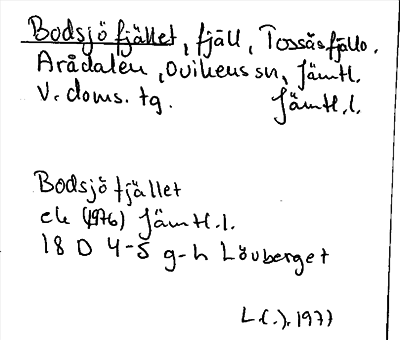 Bodsjöfjället, fjäll, Tossåsfjällo.
Arådalen, Ovikens sn, Jämtl.
V. doms. tg. Jämtl.l.
Bodsjöfjället
ek (1976) Jämtl.l.
18 D 4-5 g-h Lövberget
L.(.). 1977